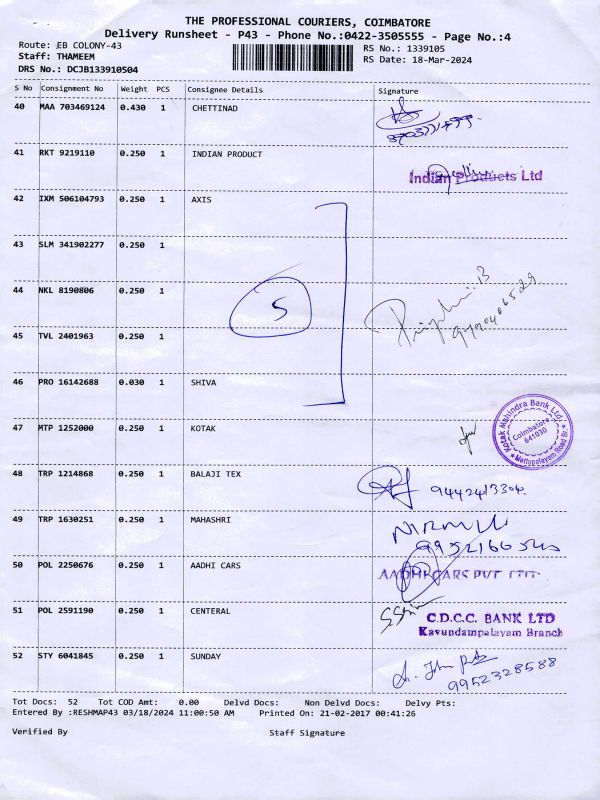 THE PROFESSIONAL COURIERS, COIMBATORE
Delivery Runsheet - P43 - Phone No.:0422-3505555 - Page No.:4
Route: EB COLONY-43
RS No.: 1339105
Staff: THAMEEM
RS Date: 18-Mar-2024
DRS No.: DCJB133910504
S No Consignment No Weight PCS Consignee Details Signature
40 MAA 703469124 0.430 1 CHETTINAD
41 RKT 9219110 0.250 1 INDIAN PRODUCT
Indian Products Ltd
42 IXM 506104793 0.250 1 AXIS
43 SLM 341902277 0.250 1
44 NKL 8190806 0.250 1
5
45 TVL 2401963 0.250 1
46 PRO 16142688 0.030 1 SHIVA
47 MTP 1252000 0.250 1 KOTAK
Kotak Mahindra Bank Ltd
Coimbatore
641030
Mettupalayam Road Br.
48 TRP 1214868 0.250 1 BALAJI TEX
9442413304
49 TRP 1630251 0.250 1 MAHASHRI
50 POL 2250676 0.250 1 AADHI CARS
AADHI CARS PVT LTD
51 POL 2591190 0.250 1 CENTERAL
C.D.C.C. BANK LTD
Kavundampalayam Branch
52 STY 6041845 0.250 1 SUNDAY
9952328588
Tot Docs: 52 Tot COD Amt: 0.00 Delvd Docs: Non Delvd Docs: Delvy Pts:
Entered By :RESHMAP43 03/18/2024 11:00:50 AM Printed On: 21-02-2017 00:41:26
Verified By Staff Signature